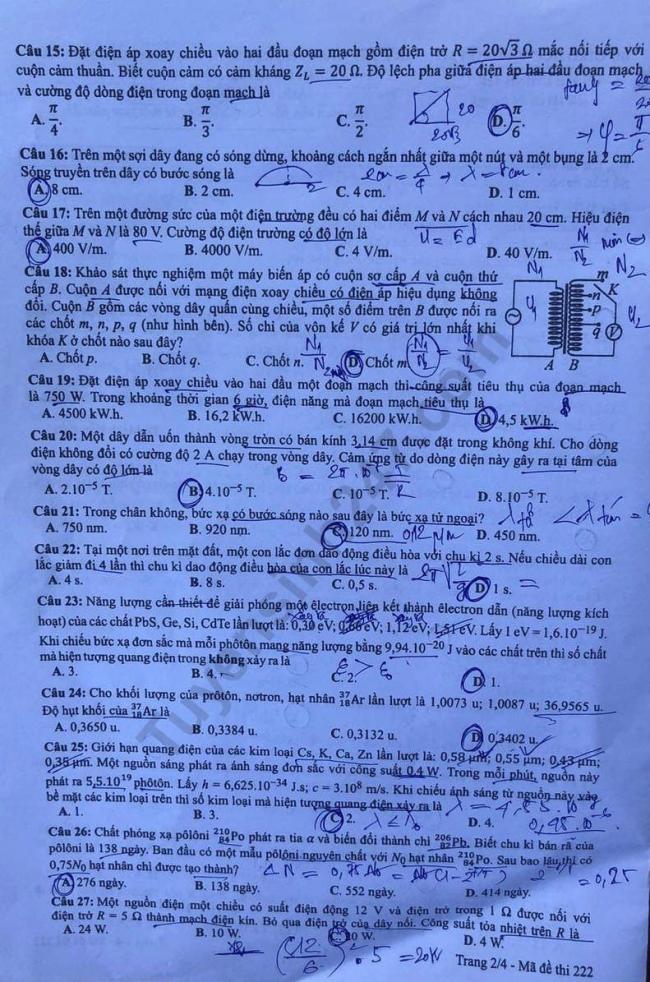 Câu 15: Đặt điện áp xoay chiều vào hai đầu đoạn mạch gồm điện trở R = 20√3 Ω mắc nối tiếp với
cuộn cảm thuần. Biết cuộn cảm có cảm kháng Z_L = 20 Ω. Độ lệch pha giữa điện áp hai đầu đoạn mạch
và cường độ dòng điện trong đoạn mạch là
A. π/4. B. π/3. C. π/2. D. π/6.
Câu 16: Trên một sợi dây đang có sóng dừng, khoảng cách ngắn nhất giữa một nút và một bụng là 2 cm.
Sóng truyền trên dây có bước sóng là
A. 8 cm. B. 2 cm. C. 4 cm. D. 1 cm.
Câu 17: Trên một đường sức của một điện trường đều có hai điểm M và N cách nhau 20 cm. Hiệu điện
thế giữa M và N là 80 V. Cường độ điện trường có độ lớn là
U = Ed
A. 400 V/m. B. 4000 V/m. C. 4 V/m. D. 40 V/m.
Câu 18: Khảo sát thực nghiệm một máy biến áp có cuộn sơ cấp A và cuộn thứ
cấp B. Cuộn A được nối với mạng điện xoay chiều có điện áp hiệu dụng không
đổi. Cuộn B gồm các vòng dây quấn cùng chiều, một số điểm trên B được nối ra
các chốt m, n, p, q (như hình bên). Số chỉ của vôn kế V có giá trị lớn nhất khi
khóa K ở chốt nào sau đây?
A. Chốt p. B. Chốt q. C. Chốt n. D. Chốt m.
N1 N2
m K n p q V
U1 U2
A B
Câu 19: Đặt điện áp xoay chiều vào hai đầu một đoạn mạch thì công suất tiêu thụ của đoạn mạch
là 750 W. Trong khoảng thời gian 6 giờ, điện năng mà đoạn mạch tiêu thụ là
A. 4500 kW.h. B. 16,2 kW.h. C. 16200 kW.h. D. 4,5 kW.h.
Câu 20: Một dây dẫn uốn thành vòng tròn có bán kính 3,14 cm được đặt trong không khí. Cho dòng
điện không đổi có cường độ 2 A chạy trong vòng dây. Cảm ứng từ do dòng điện này gây ra tại tâm của
vòng dây có độ lớn là
A. 2.10⁻⁵ T. B. 4.10⁻⁵ T. C. 10⁻⁵ T. D. 8.10⁻⁵ T.
Câu 21: Trong chân không, bức xạ có bước sóng nào sau đây là bức xạ tử ngoại?
A. 750 nm. B. 920 nm. C. 120 nm. D. 450 nm.
Câu 22: Tại một nơi trên mặt đất, một con lắc đơn dao động điều hòa với chu kì 2 s. Nếu chiều dài con
lắc giảm đi 4 lần thì chu kì dao động điều hòa của con lắc lúc này là
A. 4 s. B. 8 s. C. 0,5 s. D. 1 s.
Câu 23: Năng lượng cần thiết để giải phóng một êlectron liên kết thành êlectron dẫn (năng lượng kích
hoạt) của các chất PbS, Ge, Si, CdTe lần lượt là: 0,30 eV; 0,66 eV; 1,12 eV; 1,51 eV. Lấy 1 eV = 1,6.10⁻¹⁹ J.
Khi chiếu bức xạ đơn sắc mà mỗi phôtôn mang năng lượng bằng 9,94.10⁻²⁰ J vào các chất trên thì số chất
mà hiện tượng quang điện trong không xảy ra là
A. 3. B. 4. C. 2. D. 1.
Câu 24: Cho khối lượng của prôtôn, nơtron, hạt nhân ³⁷₁₈Ar lần lượt là 1,0073 u; 1,0087 u; 36,9565 u.
Độ hụt khối của ³⁷₁₈Ar là
A. 0,3650 u. B. 0,3384 u. C. 0,3132 u. D. 0,3402 u.
Câu 25: Giới hạn quang điện của các kim loại Cs, K, Ca, Zn lần lượt là: 0,58 μm; 0,55 μm; 0,43 μm;
0,35 μm. Một nguồn sáng phát ra ánh sáng đơn sắc với công suất 0,4 W. Trong mỗi phút, nguồn này
phát ra 5,5.10¹⁹ phôtôn. Lấy h = 6,625.10⁻³⁴ J.s; c = 3.10⁸ m/s. Khi chiếu ánh sáng từ nguồn này vào
bề mặt các kim loại trên thì số kim loại mà hiện tượng quang điện xảy ra là
A. 1. B. 3. C. 2. D. 4.
Câu 26: Chất phóng xạ pôlôni ²¹⁰₈₄Po phát ra tia α và biến đổi thành chì ²⁰⁶₈₂Pb. Biết chu kì bán rã của
pôlôni là 138 ngày. Ban đầu có một mẫu pôlôni nguyên chất với N₀ hạt nhân ²¹⁰₈₄Po. Sau bao lâu thì có
0,75N₀ hạt nhân chì được tạo thành?
A. 276 ngày. B. 138 ngày. C. 552 ngày. D. 414 ngày.
Câu 27: Một nguồn điện một chiều có suất điện động 12 V và điện trở trong 1 Ω được nối với
điện trở R = 5 Ω thành mạch điện kín. Bỏ qua điện trở của dây nối. Công suất tỏa nhiệt trên R là
A. 24 W. B. 10 W. C. 20 W. D. 4 W.
(12/6)² . 5 = 20W
Trang 2/4 - Mã đề thi 222